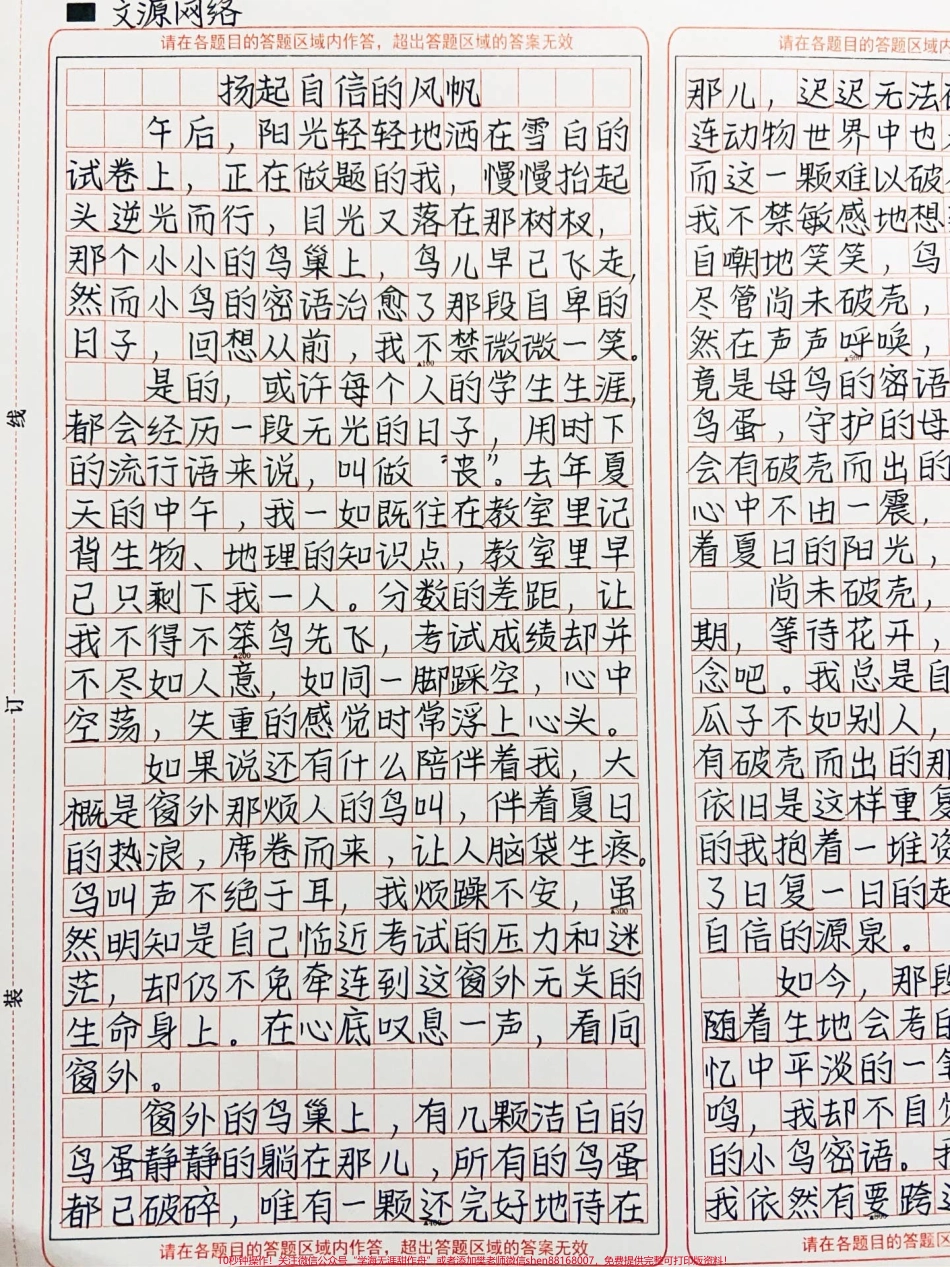 文源网络
请在各题目的答题区域内作答，超出答题区域的答案无效
扬起自信的风帆
午后，阳光轻轻地洒在雪白的
试卷上，正在做题的我，慢慢抬起
头逆光而行，目光又落在那树杈，
那个小小的鸟巢上，鸟儿早已飞走，
然而小鸟的密语治愈了那段自卑的
日子，回想从前，我不禁微微一笑。
▲100
是的，或许每个人的学生生涯，
都会经历一段无光的日子，用时下
的流行语来说，叫做“丧”。去年夏
天的中午，我一如既往在教室里记
背生物、地理的知识点，教室里早
已只剩下我一人。分数的差距，让
我不得不笨鸟先飞，考试成绩却并
▲200
不尽如人意，如同一脚踩空，心中
空荡，失重的感觉时常浮上心头。
如果说还有什么陪伴着我，大
概是窗外那烦人的鸟叫，伴着夏日
的热浪，席卷而来，让人脑袋生疼。
鸟叫声不绝于耳，我烦躁不安，虽
▲300
然明知是自己临近考试的压力和迷
茫，却仍不免牵连到这窗外无关的
生命身上。在心底叹息一声，看向
窗外。
窗外的鸟巢上，有几颗洁白的
鸟蛋静静的躺在那儿，所有的鸟蛋
都已破碎，唯有一颗还完好地待在
▲400
请在各题目的答题区域内作答，超出答题区域的答案无效
请在各题目的答题区域内
那儿，迟迟无法
连动物世界中也
而这一颗难以破
我不禁敏感地想
自嘲地笑笑，鸟
尽管尚未破壳，
然在声声呼唤，
竟是母鸟的密语
鸟蛋，守护的母
会有破壳而出的
心中不由一震，
着夏日的阳光，
尚未破壳，
期，等待花开，
念吧。我总是自
瓜子不如别人，
有破壳而出的那
依旧是这样重复
的我抱着一堆资
了日复一日的起
自信的源泉。
如今，那段
随着生地会考的
忆中平淡的一笔
鸣，我却不自觉
的小鸟密语。我
我依然有要跨过
请在各题目的答题区
线
订
装
10秒钟操作！关注微信公众号“学海无涯甜作舟”或者添加樊老师微信shen88168007，免费提供完整可打印版资料！